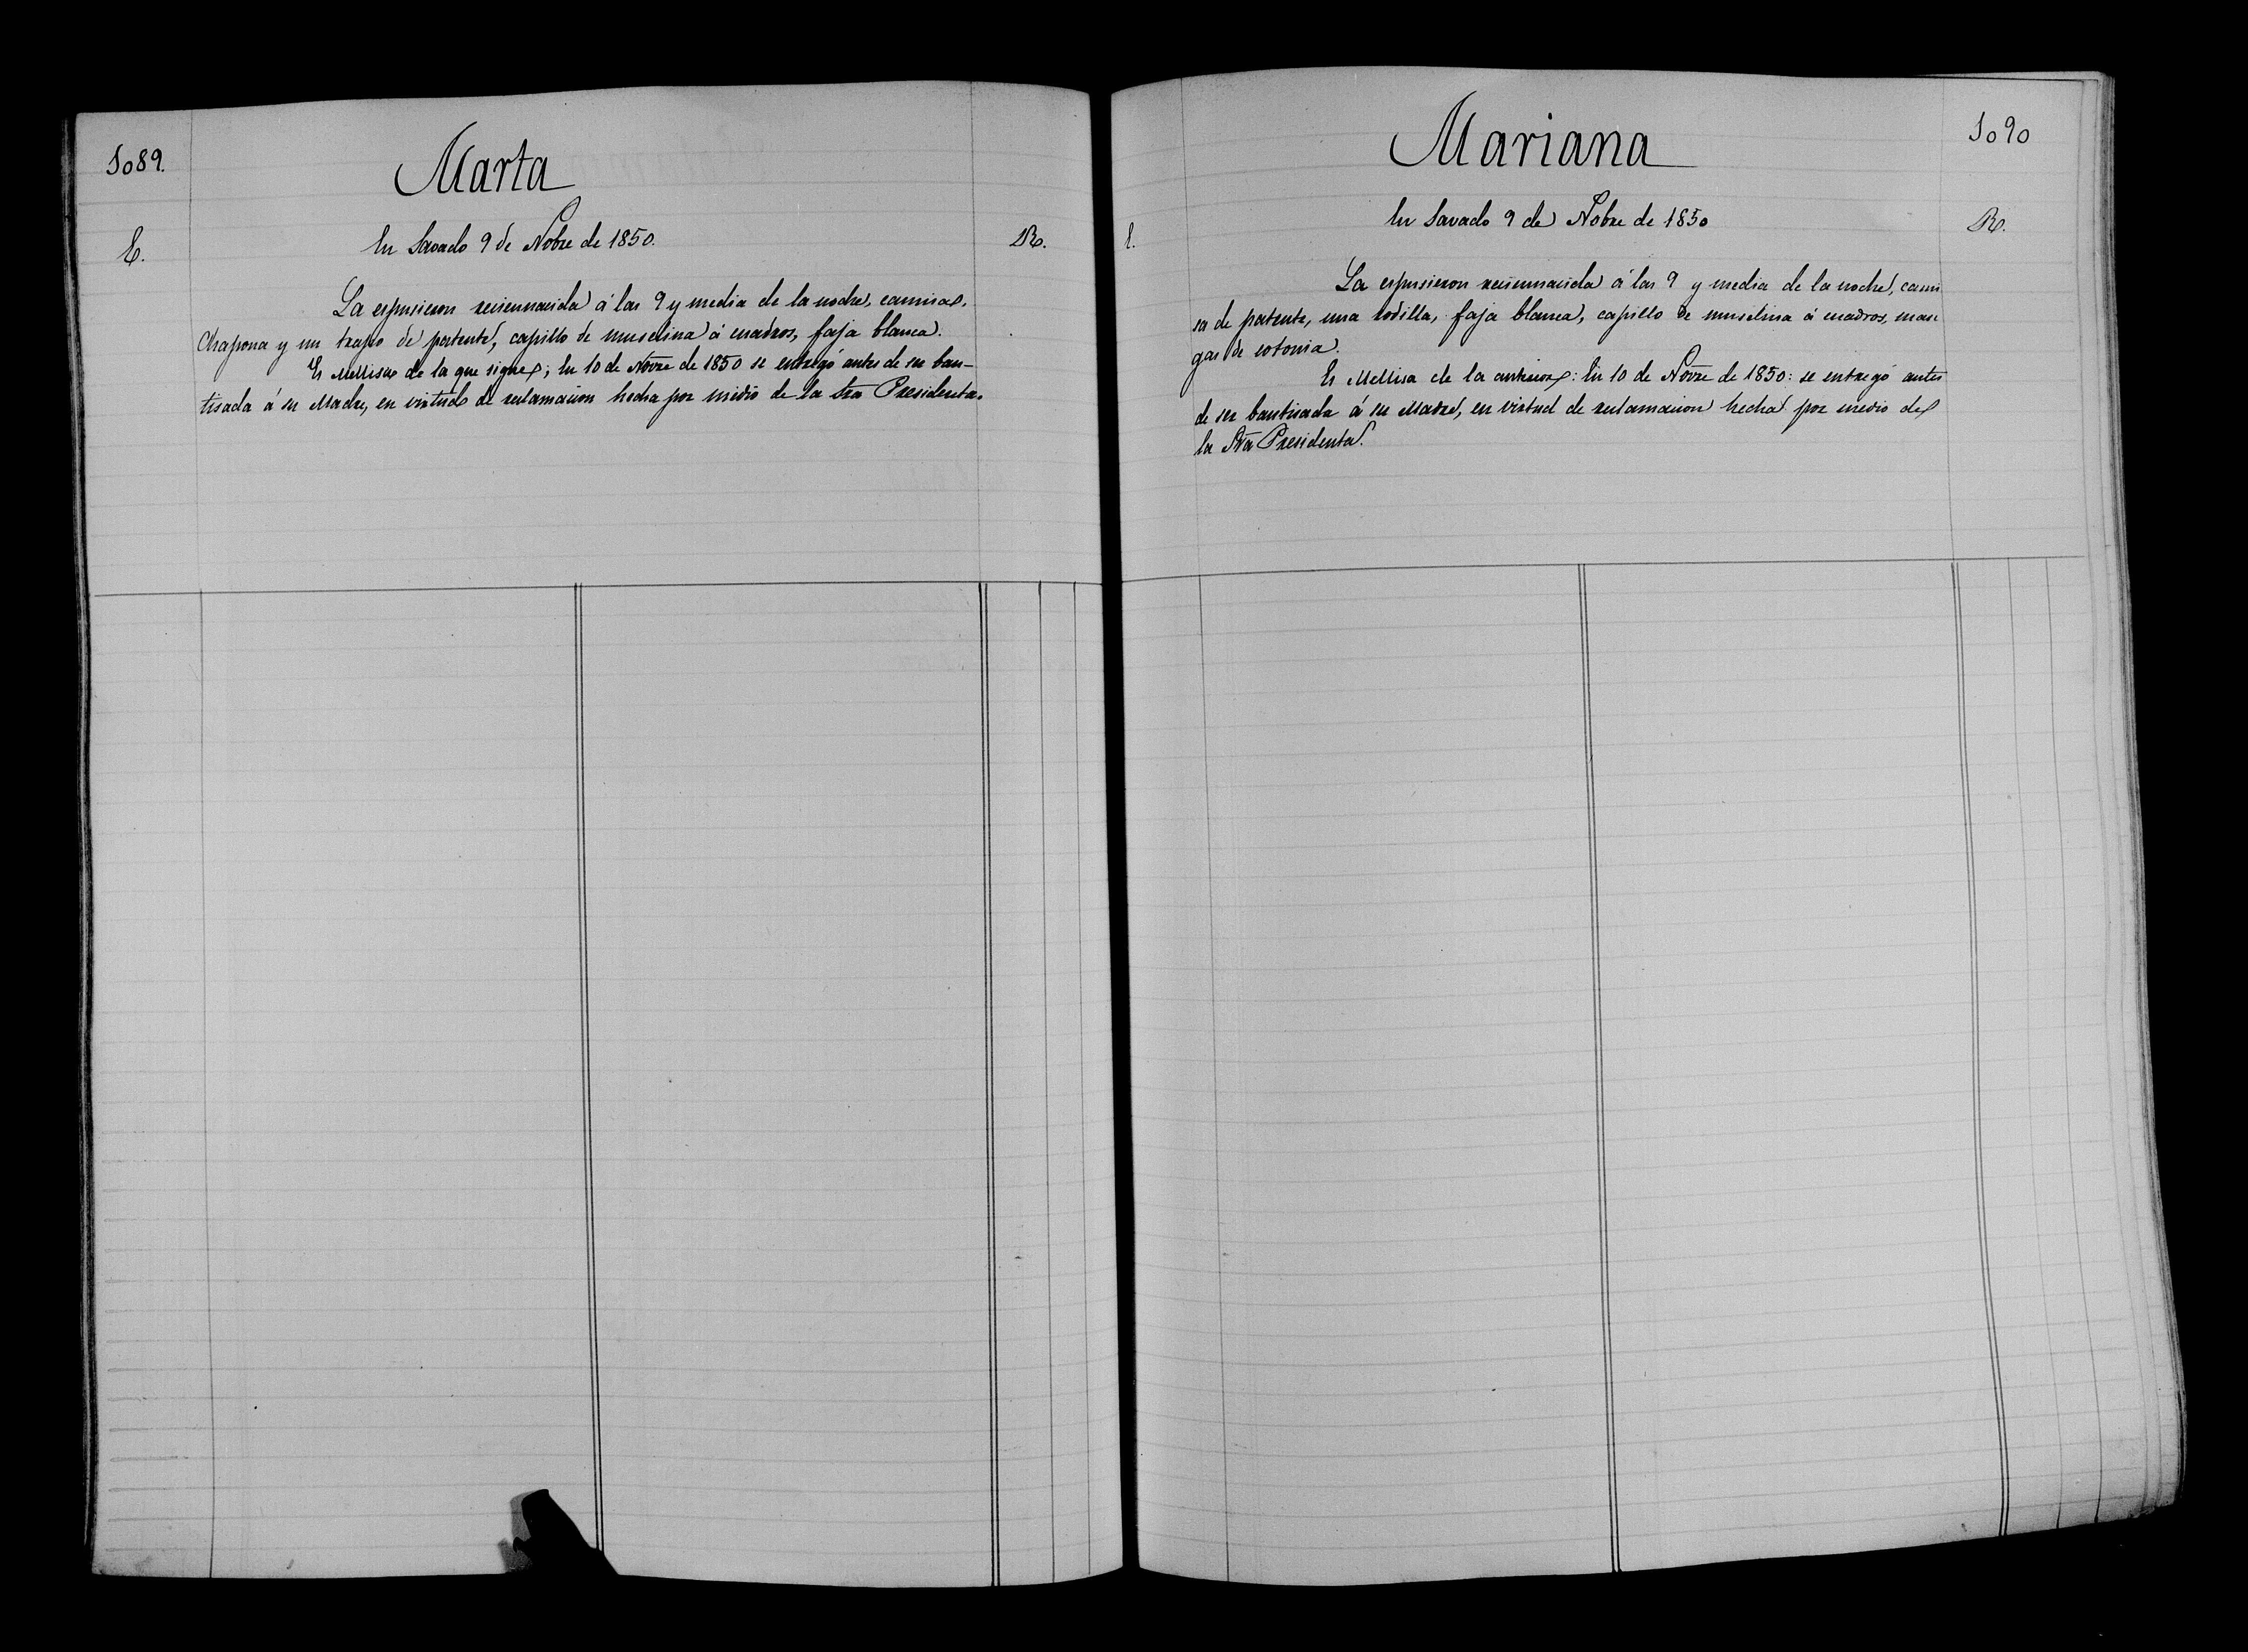 1089.
Marta
E.
En Savado 9 de Nobre de 1850.
R.
La espusieron reciennacida á las 9 y media de la noche, camisa,
Chapona y un trapo de patente, capillo de muselina á cuadros, faja blanca.
Es Mellisa de la que sigue; En 10 de Novre de 1850 se entregó antes de ser bau-
tisada á su Madre, en virtud de reclamacion hecha por medio de la Sra Presidenta.
1090
Mariana
E.
En Savado 9 de Nobre de 1850
R.
La espusieron reciennacida á las 9 y media de la noche, cami
sa de patente, una rodilla, faja blanca, capillo de muselina á cuadros, man
gas de cotonia.
Es Mellisa de la anterior: En 10 de Novre de 1850: se entregó antes
de ser bautisada á su Madre, en virtud de reclamacion hecha por medio de
la Sra Presidenta.